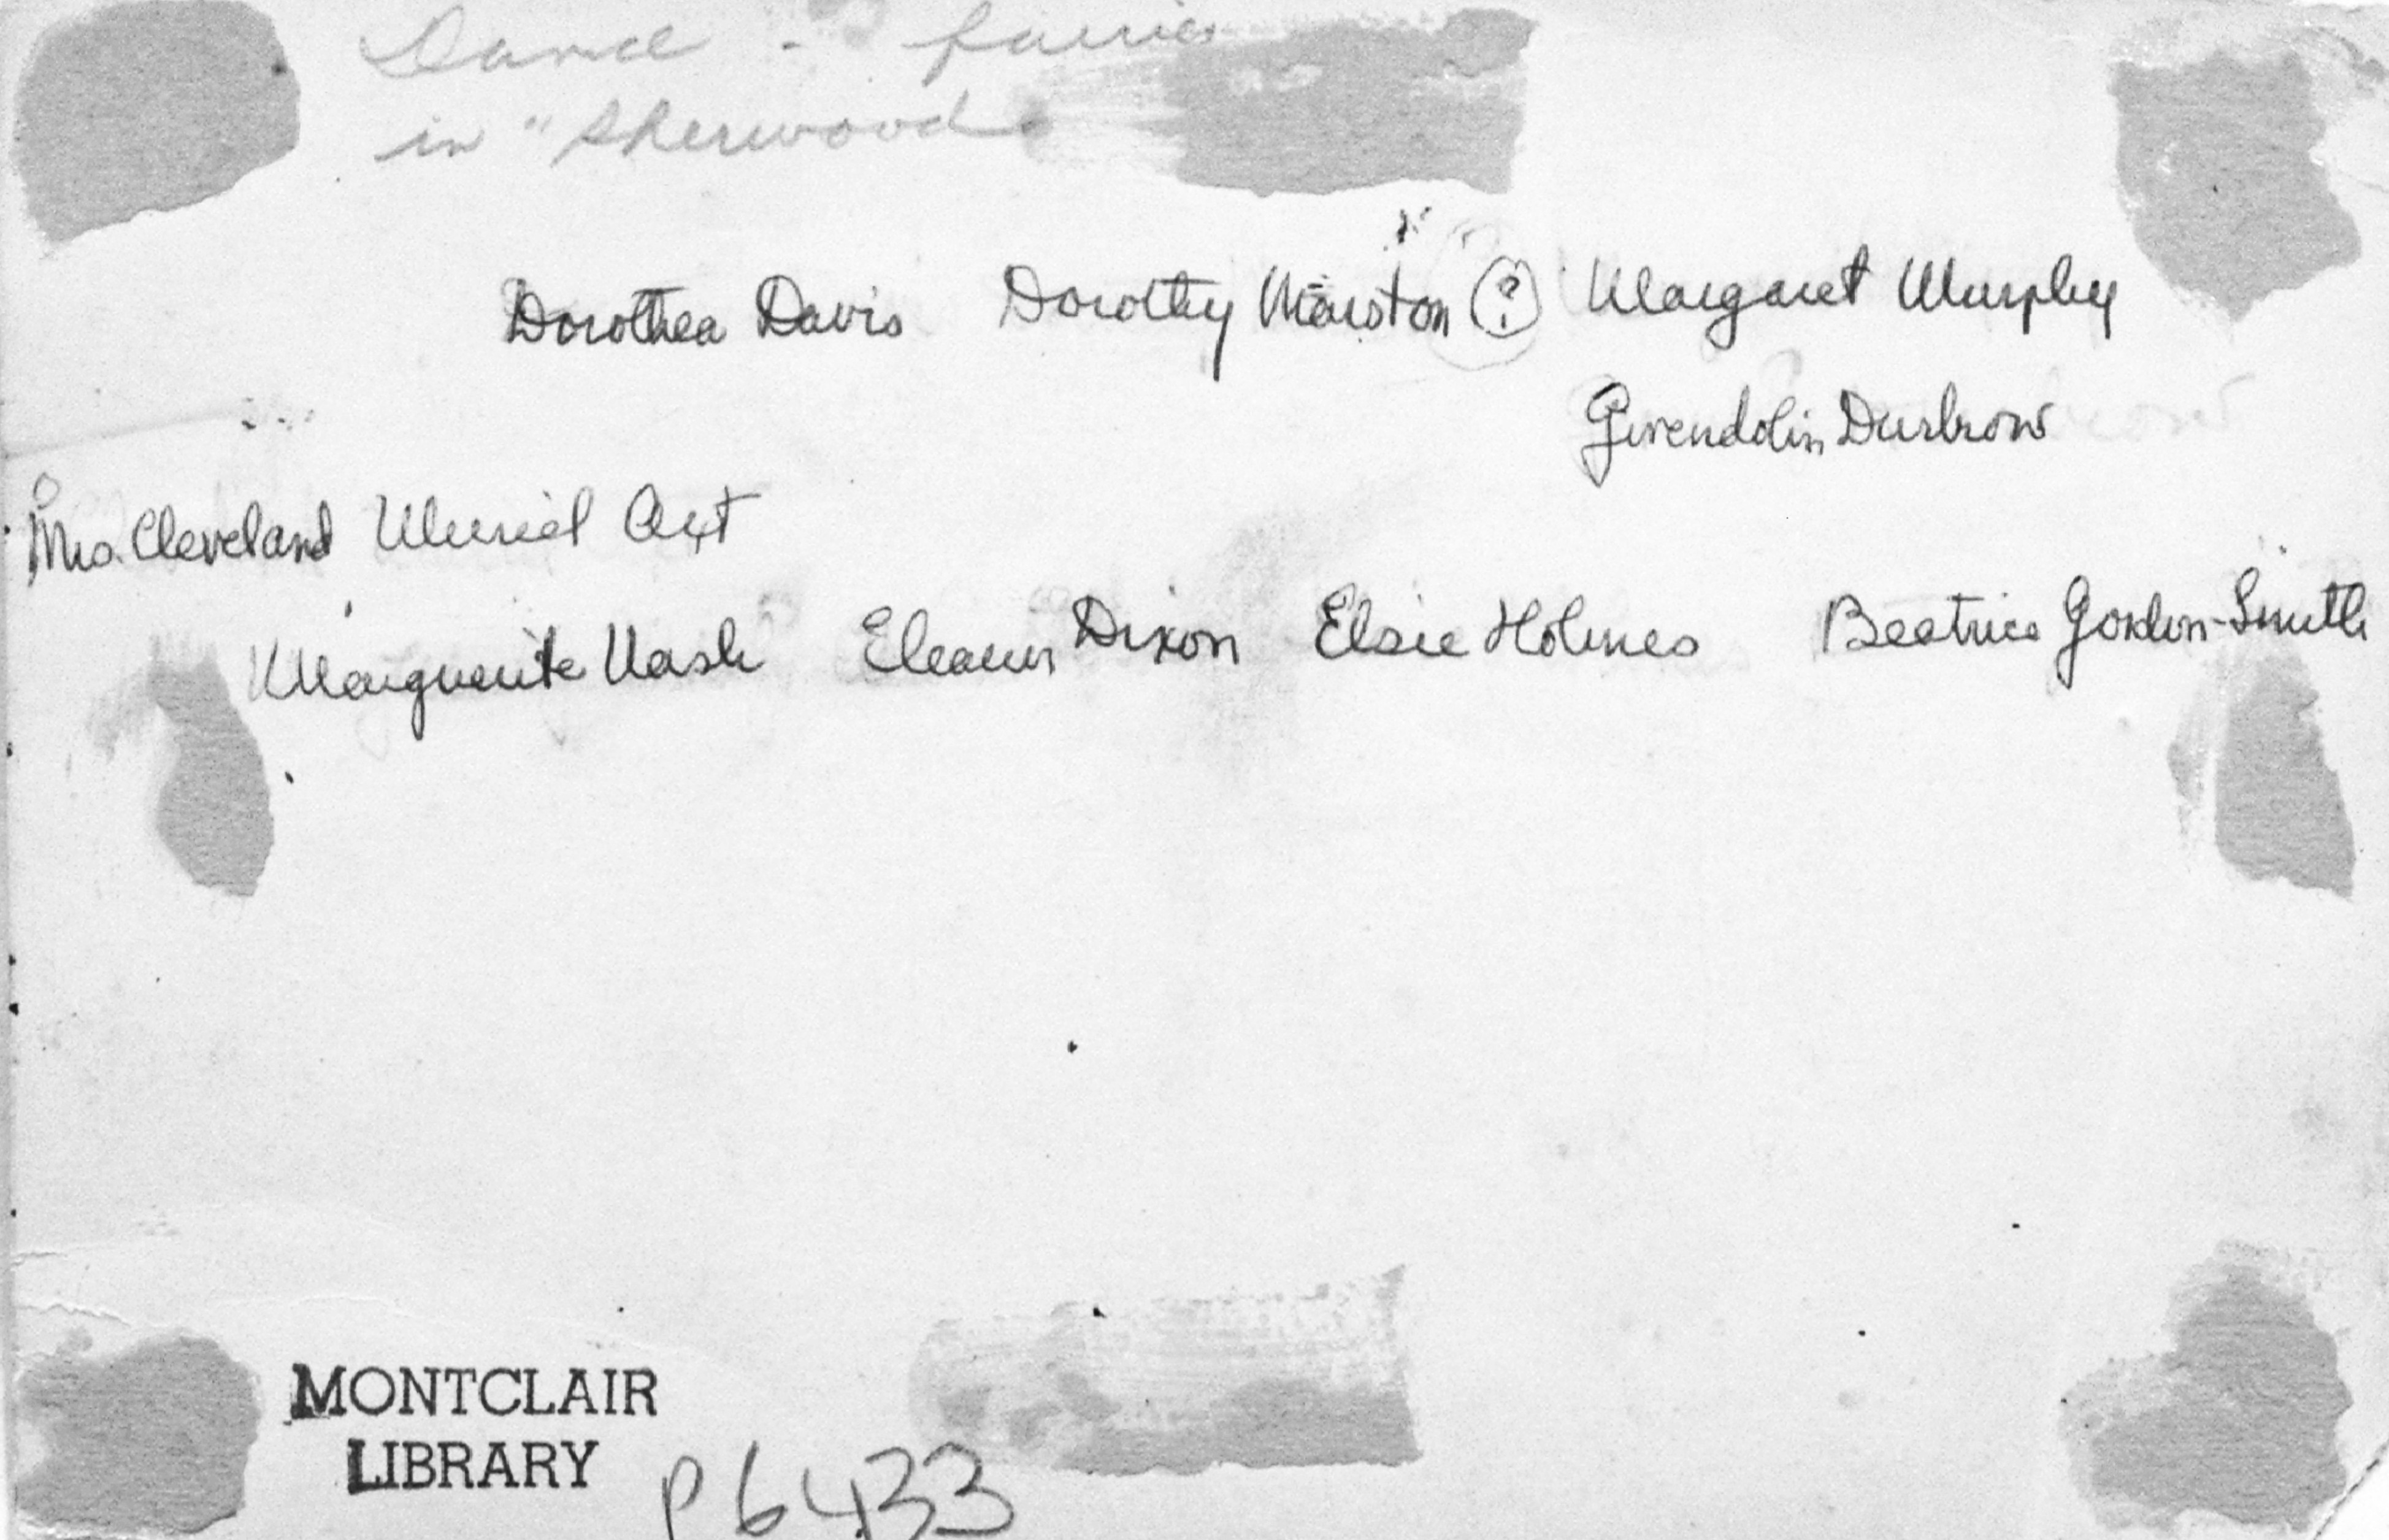 Dance - fairies
in "Sherwood
Dorothea Davis Dorothy Marston (?) Margaret Murphy
Gwendolin Durbrow
Mrs. Cleveland Muriel Axt
Marguerite Nash Eleanor Dixon Elsie Holmes Beatrice Gordon-Smith
MONTCLAIR
LIBRARY
P6433